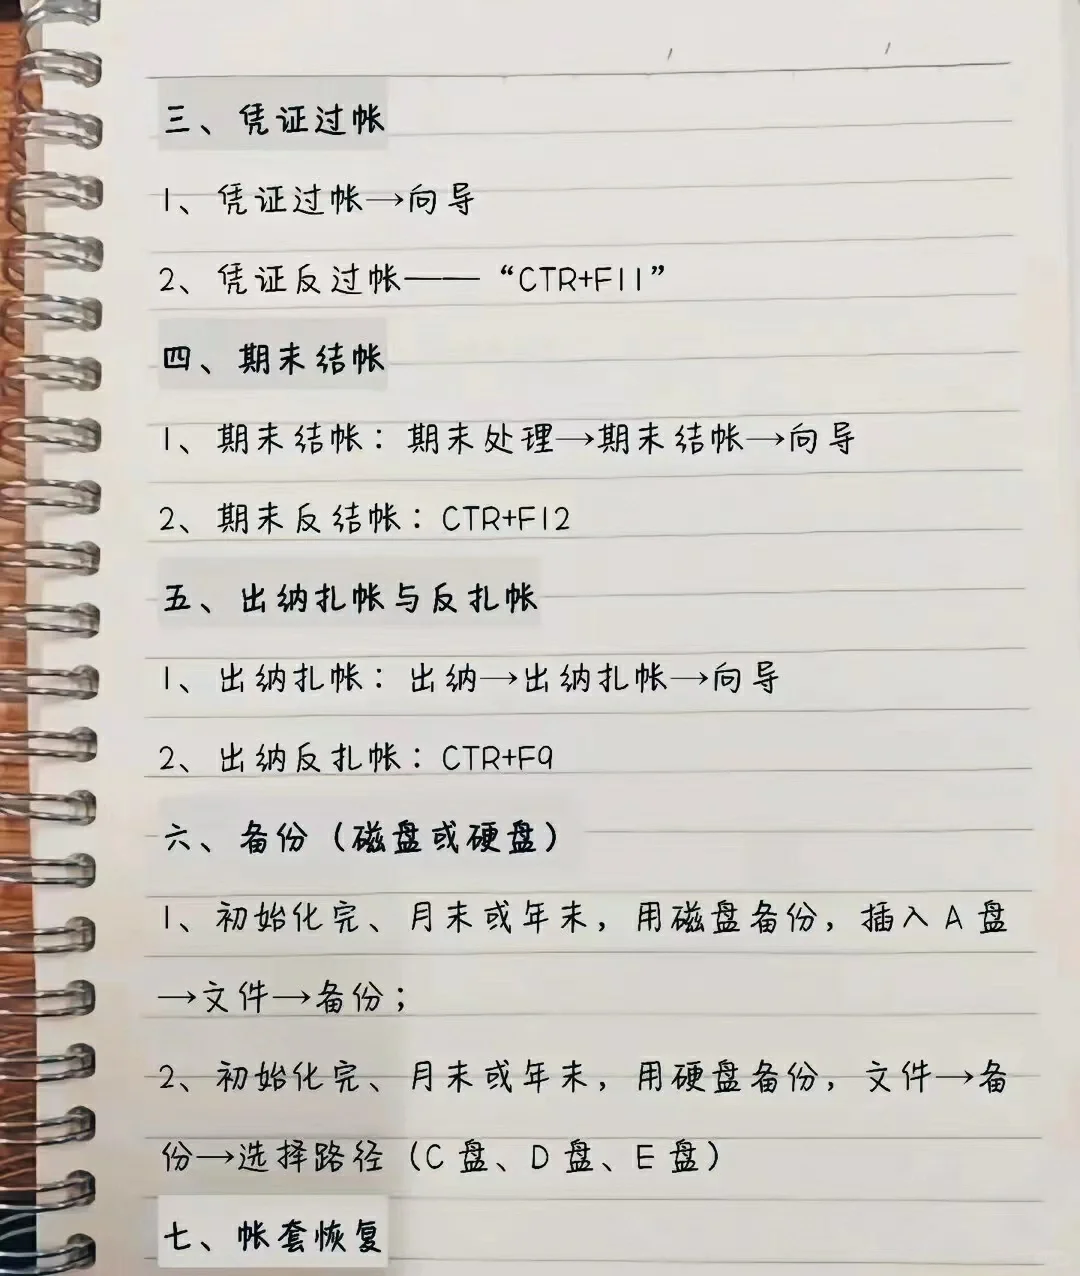 三、凭证过帐
1、凭证过帐→向导
2、凭证反过帐——“CTR+F11”
四、期末结帐
1、期末结帐：期末处理→期末结帐→向导
2、期末反结帐：CTR+F12
五、出纳扎帐与反扎帐
1、出纳扎帐：出纳→出纳扎帐→向导
2、出纳反扎帐：CTR+F9
六、备份（磁盘或硬盘）
1、初始化完、月末或年末，用磁盘备份，插入A盘
→文件→备份；
2、初始化完、月末或年末，用硬盘备份，文件→备
份→选择路径（C盘、D盘、E盘）
七、帐套恢复